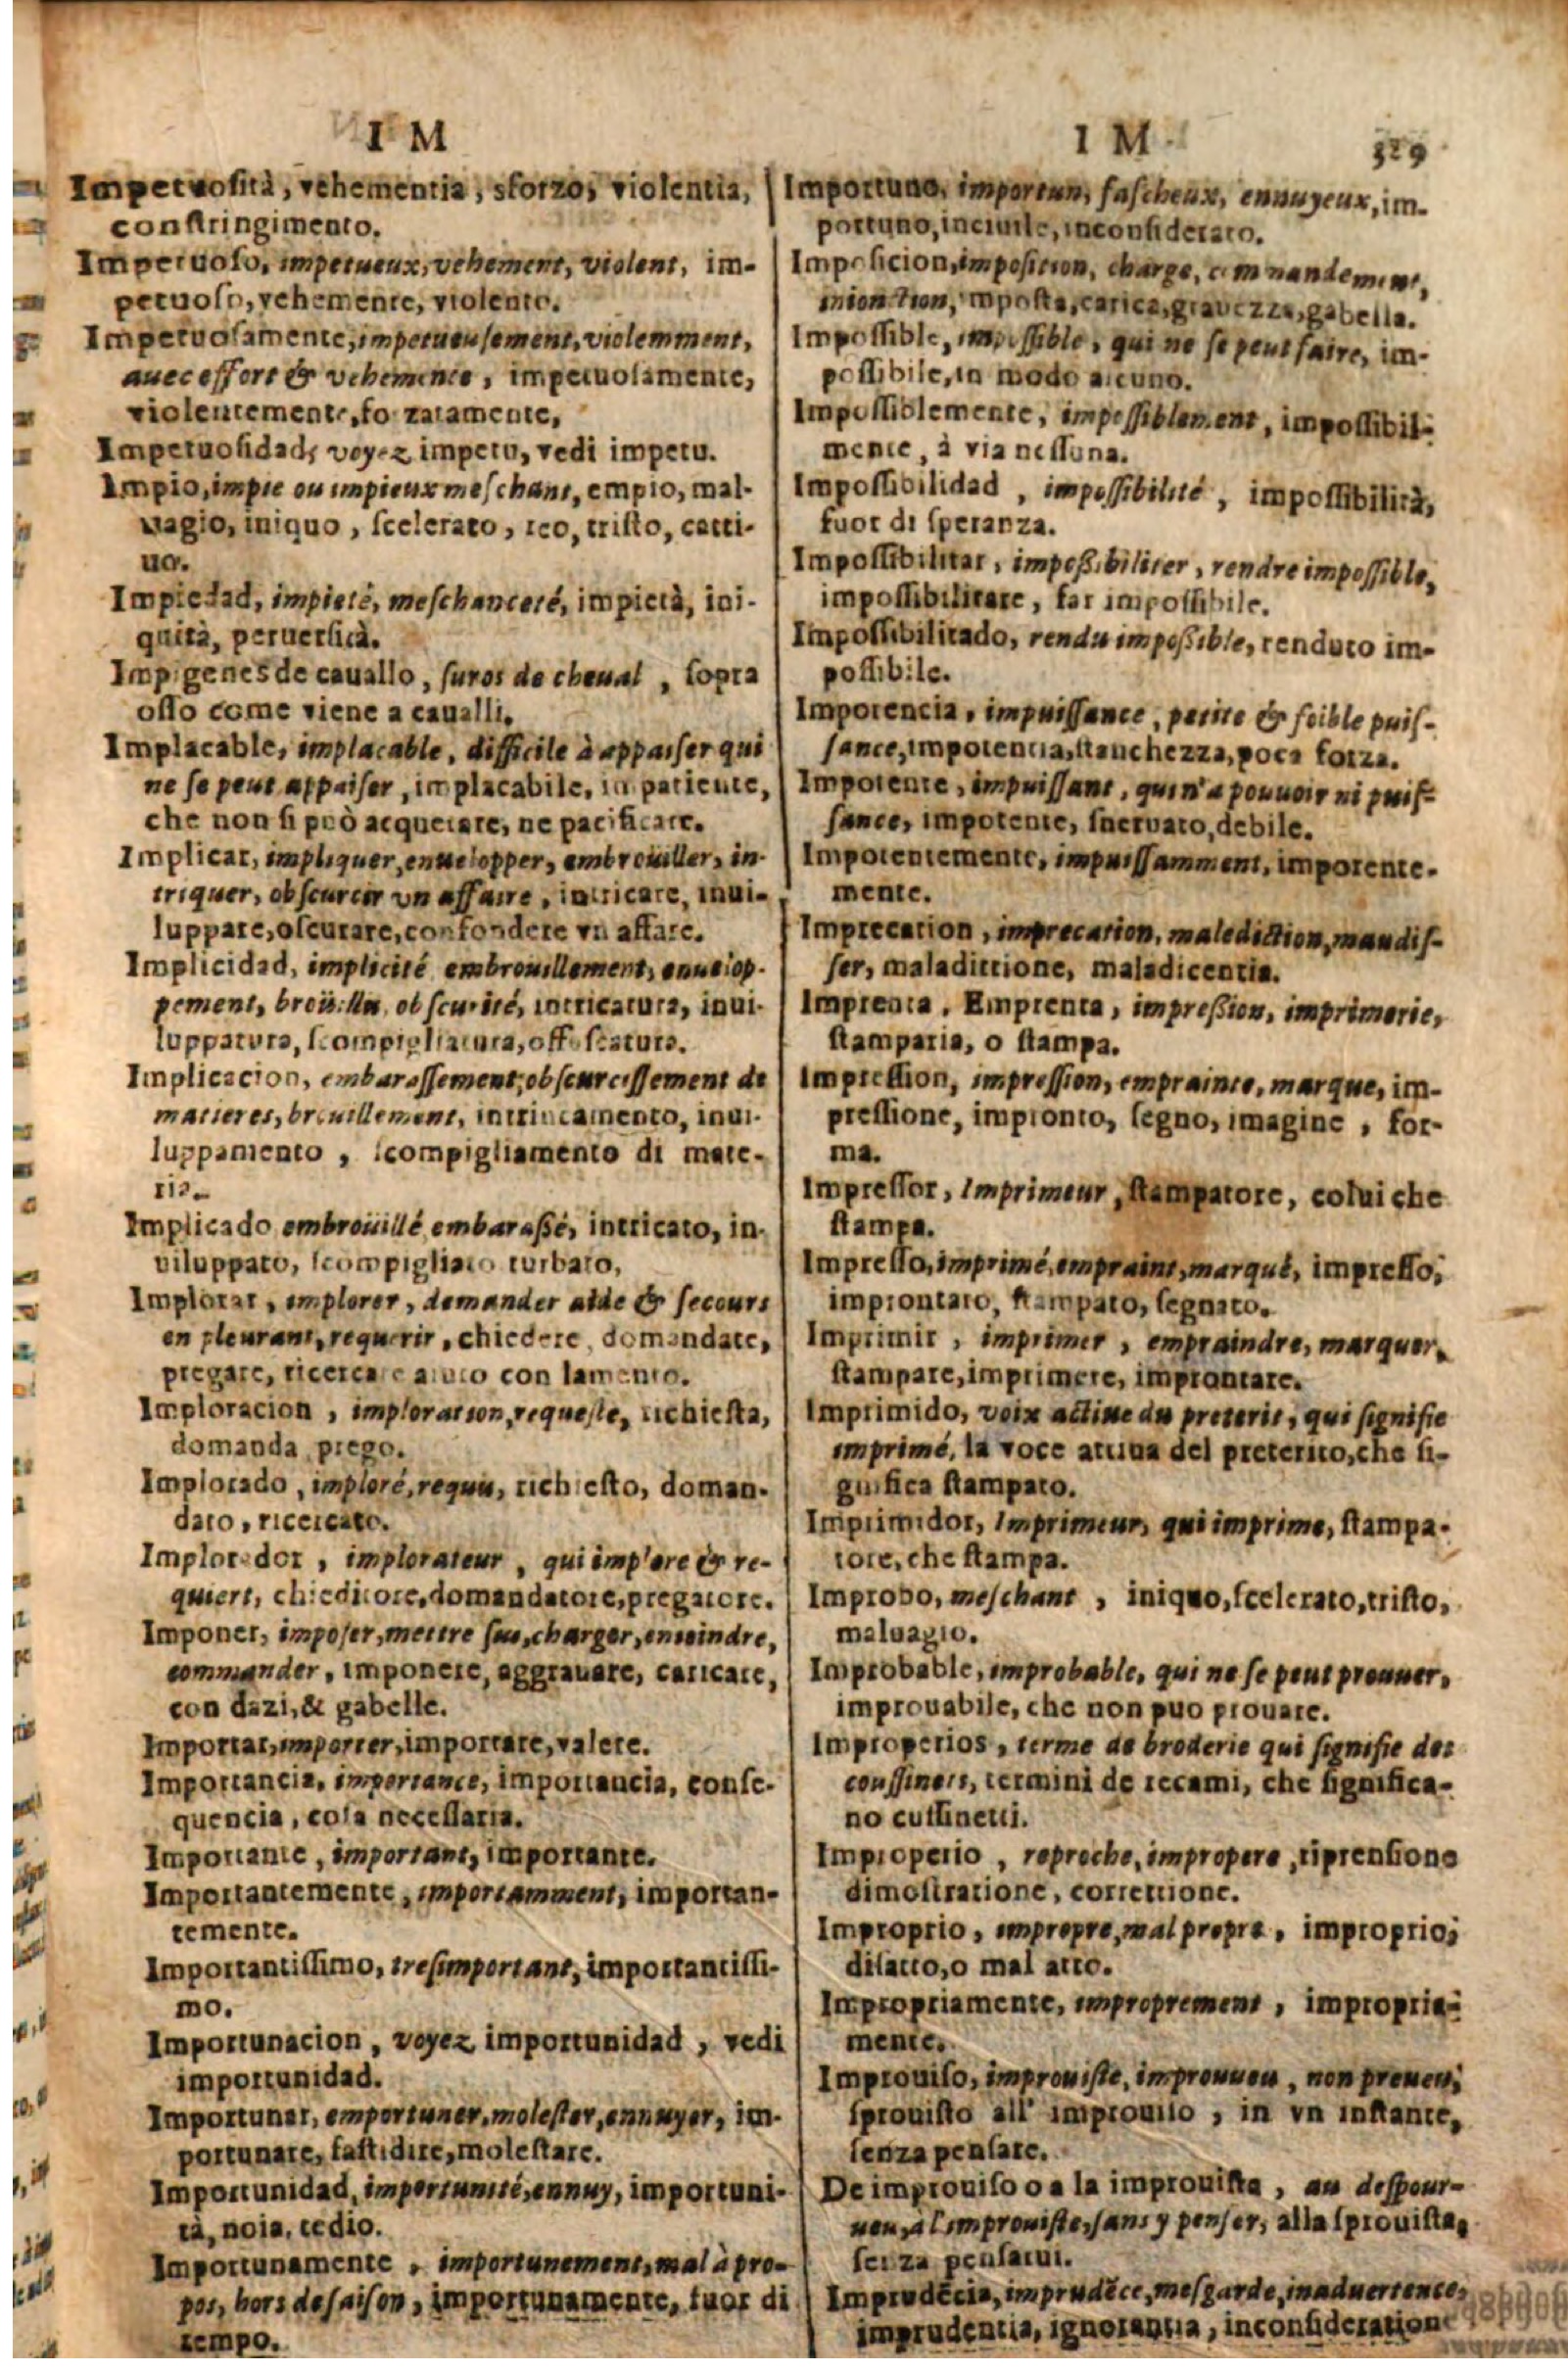 I M
Impetuosità, vehementia, sforzo, violentia,
constringimento.
Impetuoso, impetueux, vehement, violent, im-
petuoso, vehemente, violento.
Impetuosamente, impetueusement, violemment,
auec effort & vehemence, impetuosamente,
violentemente, forzatamente,
Impetuosidad, voyez impetu, vedi impetu.
Impio, impie ou impieux meschant, empio, mal-
uagio, iniquo, scelerato, reo, tristo, catti-
uo.
Impiedad, impieté, meschanceté, impietà, ini-
quità, peruersità.
Impigenes de cauallo, suros de cheual, sopra
osso come viene a caualli.
Implacable, implacable, difficile à appaiser qui
ne se peut appaiser, implacabile, impatiente,
che non si può acquetare, ne pacificare.
Implicar, impliquer, enuelopper, embroüiller, in-
triquer, obscurcir vn affaire, intricare, inui-
luppare, oscurare, confondere vn affare.
Implicidad, implicité embrouillement, enuelop-
pement, broüillu, obscurité, intricatura, inui-
luppatura, scompigliatura, offuscatura.
Implicacion, embarassement, obscurcissement de
matieres, brouillement, intrincamento, inui-
luppamento, scompigliamento di mate-
ria.
Implicado embroüillé embarassé, intricato, in-
uiluppato, scompigliato turbato,
Implorar, implorer, demander aide & secours
en pleurant, requerir, chiedere, domandare,
pregare, ricercare aiuto con lamento.
Imploracion, imploration, requeste, richiesta,
domanda prego.
Implorado, imploré, requu, richiesto, doman-
dato, ricercato.
Implorador, implorateur, qui implore & re-
quiert, chieditore, domandatore, pregatore.
Imponer, imposer, mettre sus, charger, enioindre,
commander, imponere, aggrauare, caricare,
con dazi, & gabelle.
Importar, importer, importare, valere.
Importancia, importance, importancia, conse-
quencia, cosa necessaria.
Importante, important, importante.
Importantemente, importamment, importan-
temente.
Importantissimo, tresimportant, importantissi-
mo.
Importunacion, voyez importunidad, vedi
importunidad.
Importunar, emportuner, molester, ennuyer, im-
portunare, fastidire, molestare.
Importunidad, importunité, ennuy, importuni-
tà, noia, tedio.
Importunamente, importunement, mal à pro-
pos, hors de saison, importunamente, fuor di
tempo.
I M 329
Importuno, importun, fascheux, ennuyeux, im-
portuno, inciuile, inconsiderato.
Imposicion, imposition, charge, commandement,
inionction, imposta, carica, grauezza, gabella.
Impossible, impossible, qui ne se peut faire, im-
possibile, in modo alcuno.
Impossiblemente, impossiblement, impossibil-
mente, à via nessuna.
Impossibilidad, impossibilité, impossibilità,
fuor di speranza.
Impossibilitar, impossibiliter, rendre impossible,
impossibilitare, far impossibile.
Impossibilitado, rendu impossible, renduto im-
possibile.
Impotencia, impuissance, petite & foible puis-
sance, impotentia, stanchezza, poca forza.
Impotente, impuissant, qui n'a pouuoir ni puis-
sance, impotente, snervato, debile.
Impotentemente, impuissamment, impotente-
mente.
Imprecation, imprecation, malediction, maudis-
ser, maladittione, maladicentia.
Imprenta, Emprenta, impression, imprimerie,
stamparia, o stampa.
Impression, impression, emprainte, marque, im-
pressione, impronto, segno, imagine, for-
ma.
Impressor, Imprimeur, stampatore, colui che
stampa.
Impresso, imprimé, empraint, marqué, impresso,
improntato, stampato, segnato.
Imprimir, imprimer, empraindre, marquer,
stampare, imprimere, improntare.
Imprimido, voix actiue du preterit, qui signifie
imprimé, la voce attiua del preterito, che si-
gnifica stampato.
Imprimidor, Imprimeur, qui imprime, stampa-
tore, che stampa.
Improbo, meschant, iniquo, scelerato, tristo,
maluagio.
Improbable, improbable, qui ne se peut prouuer,
improuabile, che non puo prouare.
Improperios, terme de broderie qui signifie des
coussinets, termini de recami, che significa-
no cussinetti.
Improperio, reproche, impropere, riprensione
dimostratione, correttione.
Improprio, impropre, mal propre, improprio,
disatto, o mal atto.
Impropriamente, improprement, impropria-
mente.
Improuiso, improuiste, improuueu, non preueu,
sprouisto all' improuiso, in vn instante,
senza pensare.
De improuiso o a la improuista, au despour-
ueu, a l'improuiste, sans y penser, alla sprouista,
senza pensarui.
Imprudẽcia, imprudẽce, mesgarde, inaduertence,
imprudentia, ignorantia, inconsideratione